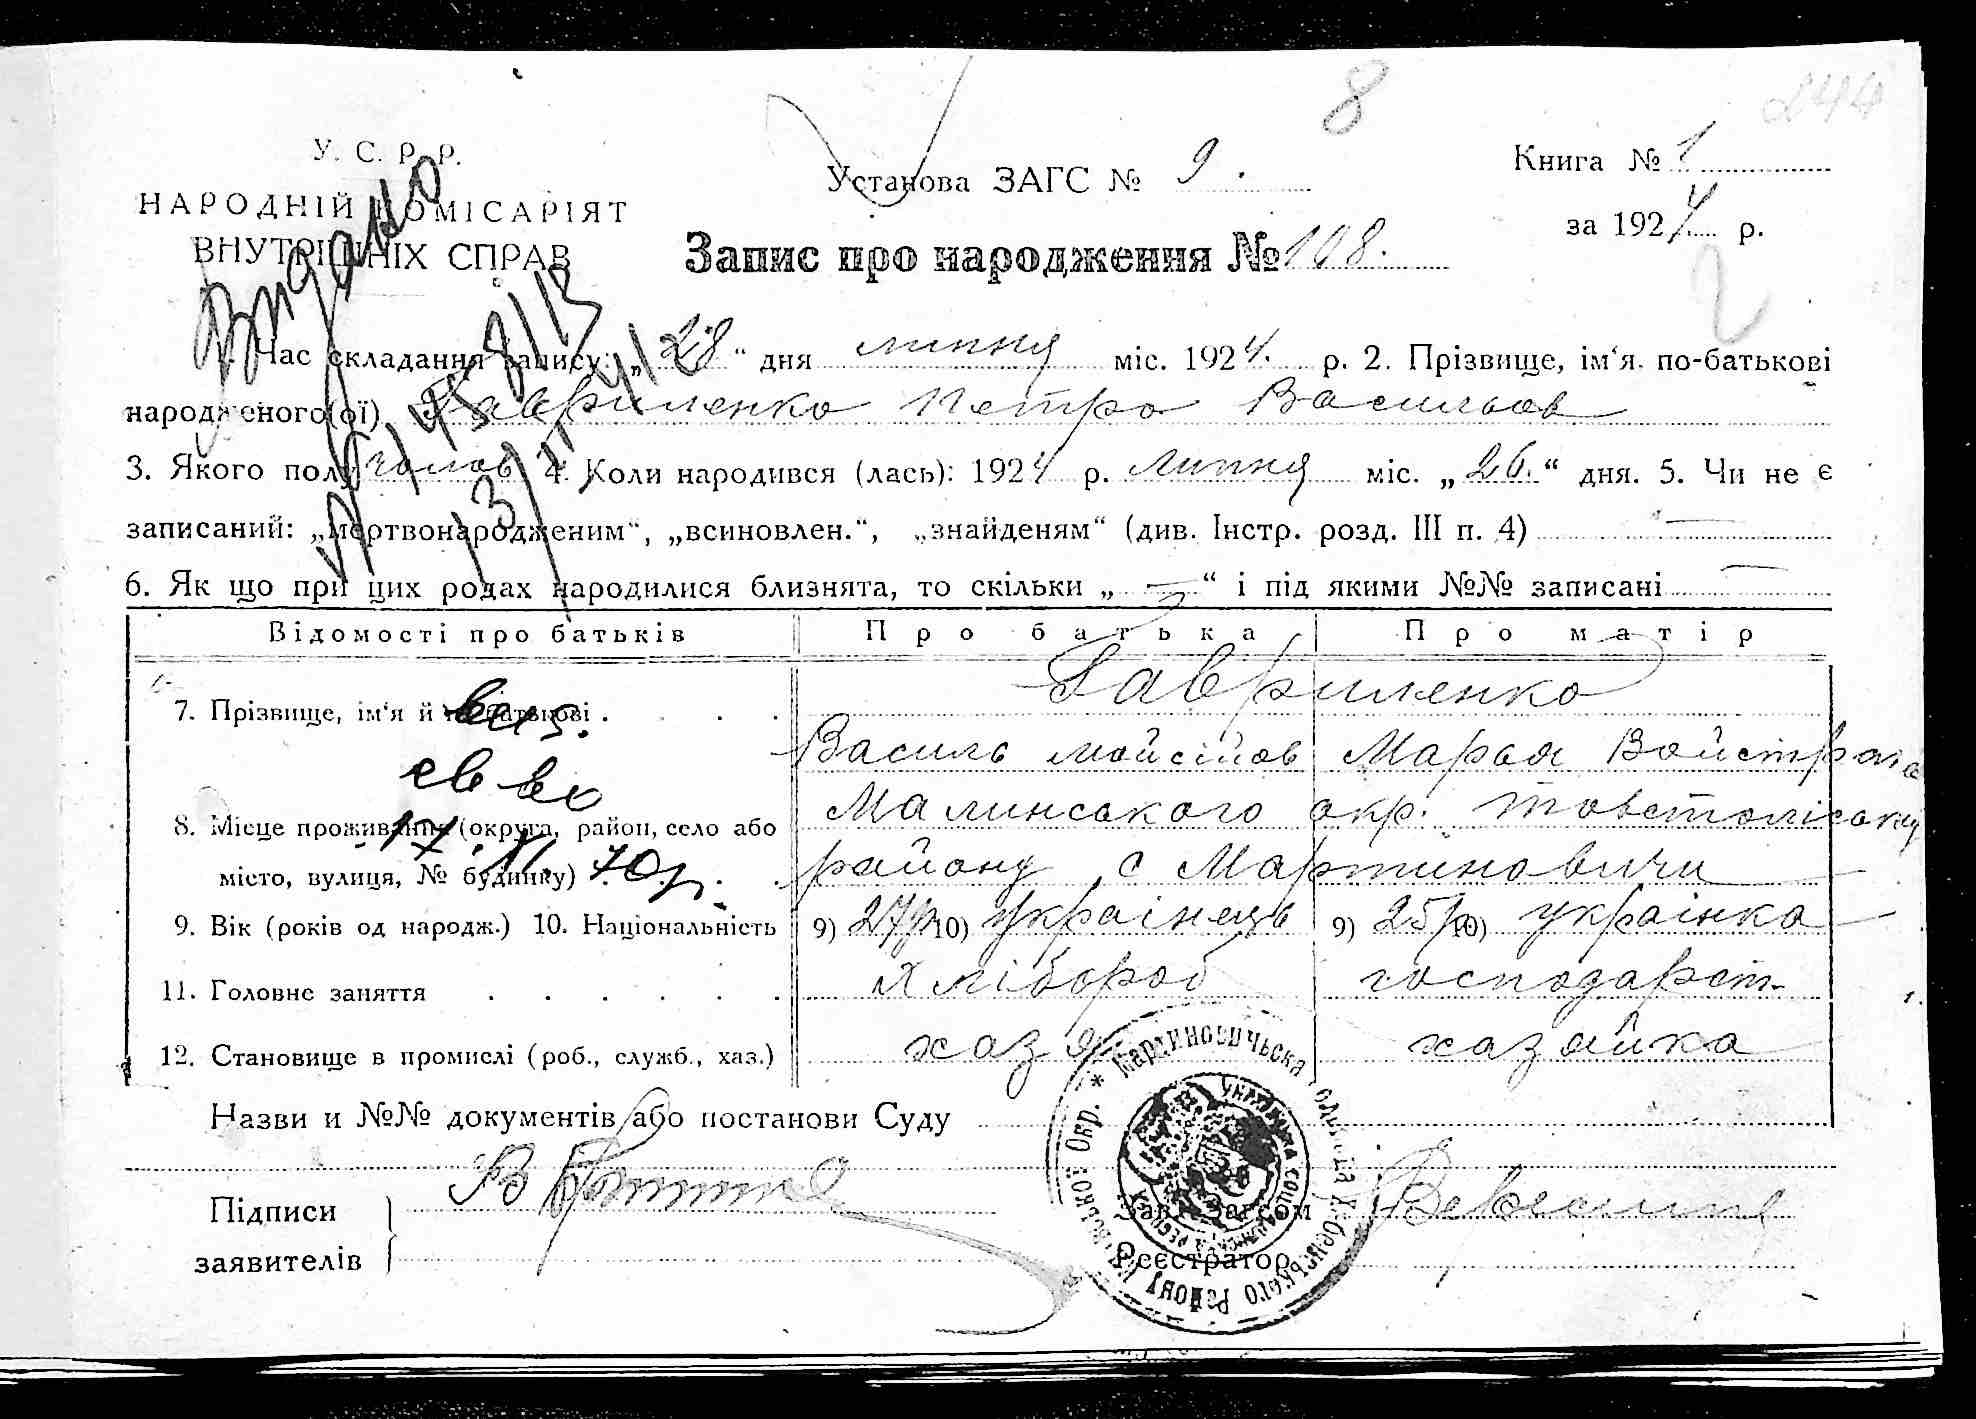 8
244
У. С. Р. Р.
НАРОДНІЙ КОМІСАРІЯТ
ВНУТРІШНІХ СПРАВ
Видано
Установа ЗАГС № 9.
Книга № 1
за 1924 р.
2
Запис про народження № 108.
1. Час складання запису: „28“ дня липня міс. 1924. р. 2. Прізвище, ім‘я, по-батькові
народженого(ої) Гавриленко Петро Васильов
3. Якого полу чолов 4. Коли народився (лась): 1924 р. липня міс. „26.“ дня. 5. Чи не є
записаний: „мертвонародженим“, „всиновлен.“, „знайденям“ (див. Інстр. розд. III п. 4) —
6. Як що при цих родах народилися близнята, то скільки „—“ і під якими №№ записані —
Відомості про батьків Про батька Про матір
7. Прізвище, ім‘я й по-батькові . . . . Гавриленко
Василь Мойсійов Марья
8. Місце проживання (округа, район, село або Малинського окр. Товстоліський
місто, вулиця, № будинку) . . . . району с Мартиновичи
св во
17.XI.70р.
9. Вік (років од народж.) 10. Національність 9) 27р 10) українець 9) 25р 10) українка
11. Головне заняття . . . . . . Хлібороб господарст.
12. Становище в промислі (роб., служб., хаз.) хазяїн хазяйка
Назви и №№ документів або постанови Суду
Підписи
заявителів
Зав. Загсом
Реєстратор
* Мартиновичьска сільрада Хабенського Району Київської Окр.